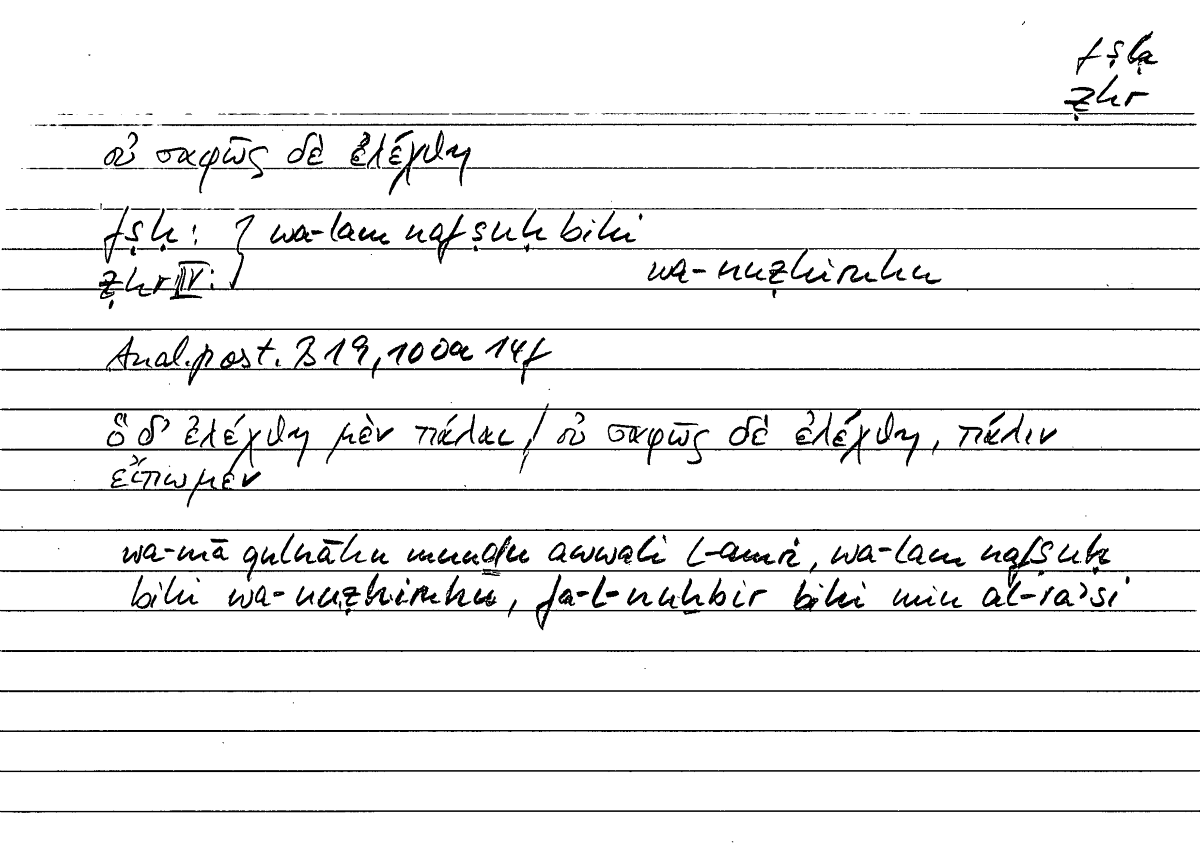 fṣḥ
ẓhr
οὐ σαφῶς δὲ ἐλέχθη
fṣḥ: } wa-lam nafṣuḥ bihi
ẓhr IV: wa-nuẓhiruhu
Anal. post. B 19, 100a 14f
ὃ δ' ἐλέχθη μὲν πάλαι, / οὐ σαφῶς δὲ ἐλέχθη, πάλιν
εἴπωμεν
wa-mā qulnāhu munḏu awwali l-amri, wa-lam nafṣuḥ
bihi wa-nuẓhiruhu, fa-l-nuḫbir bihi min al-raʾsi